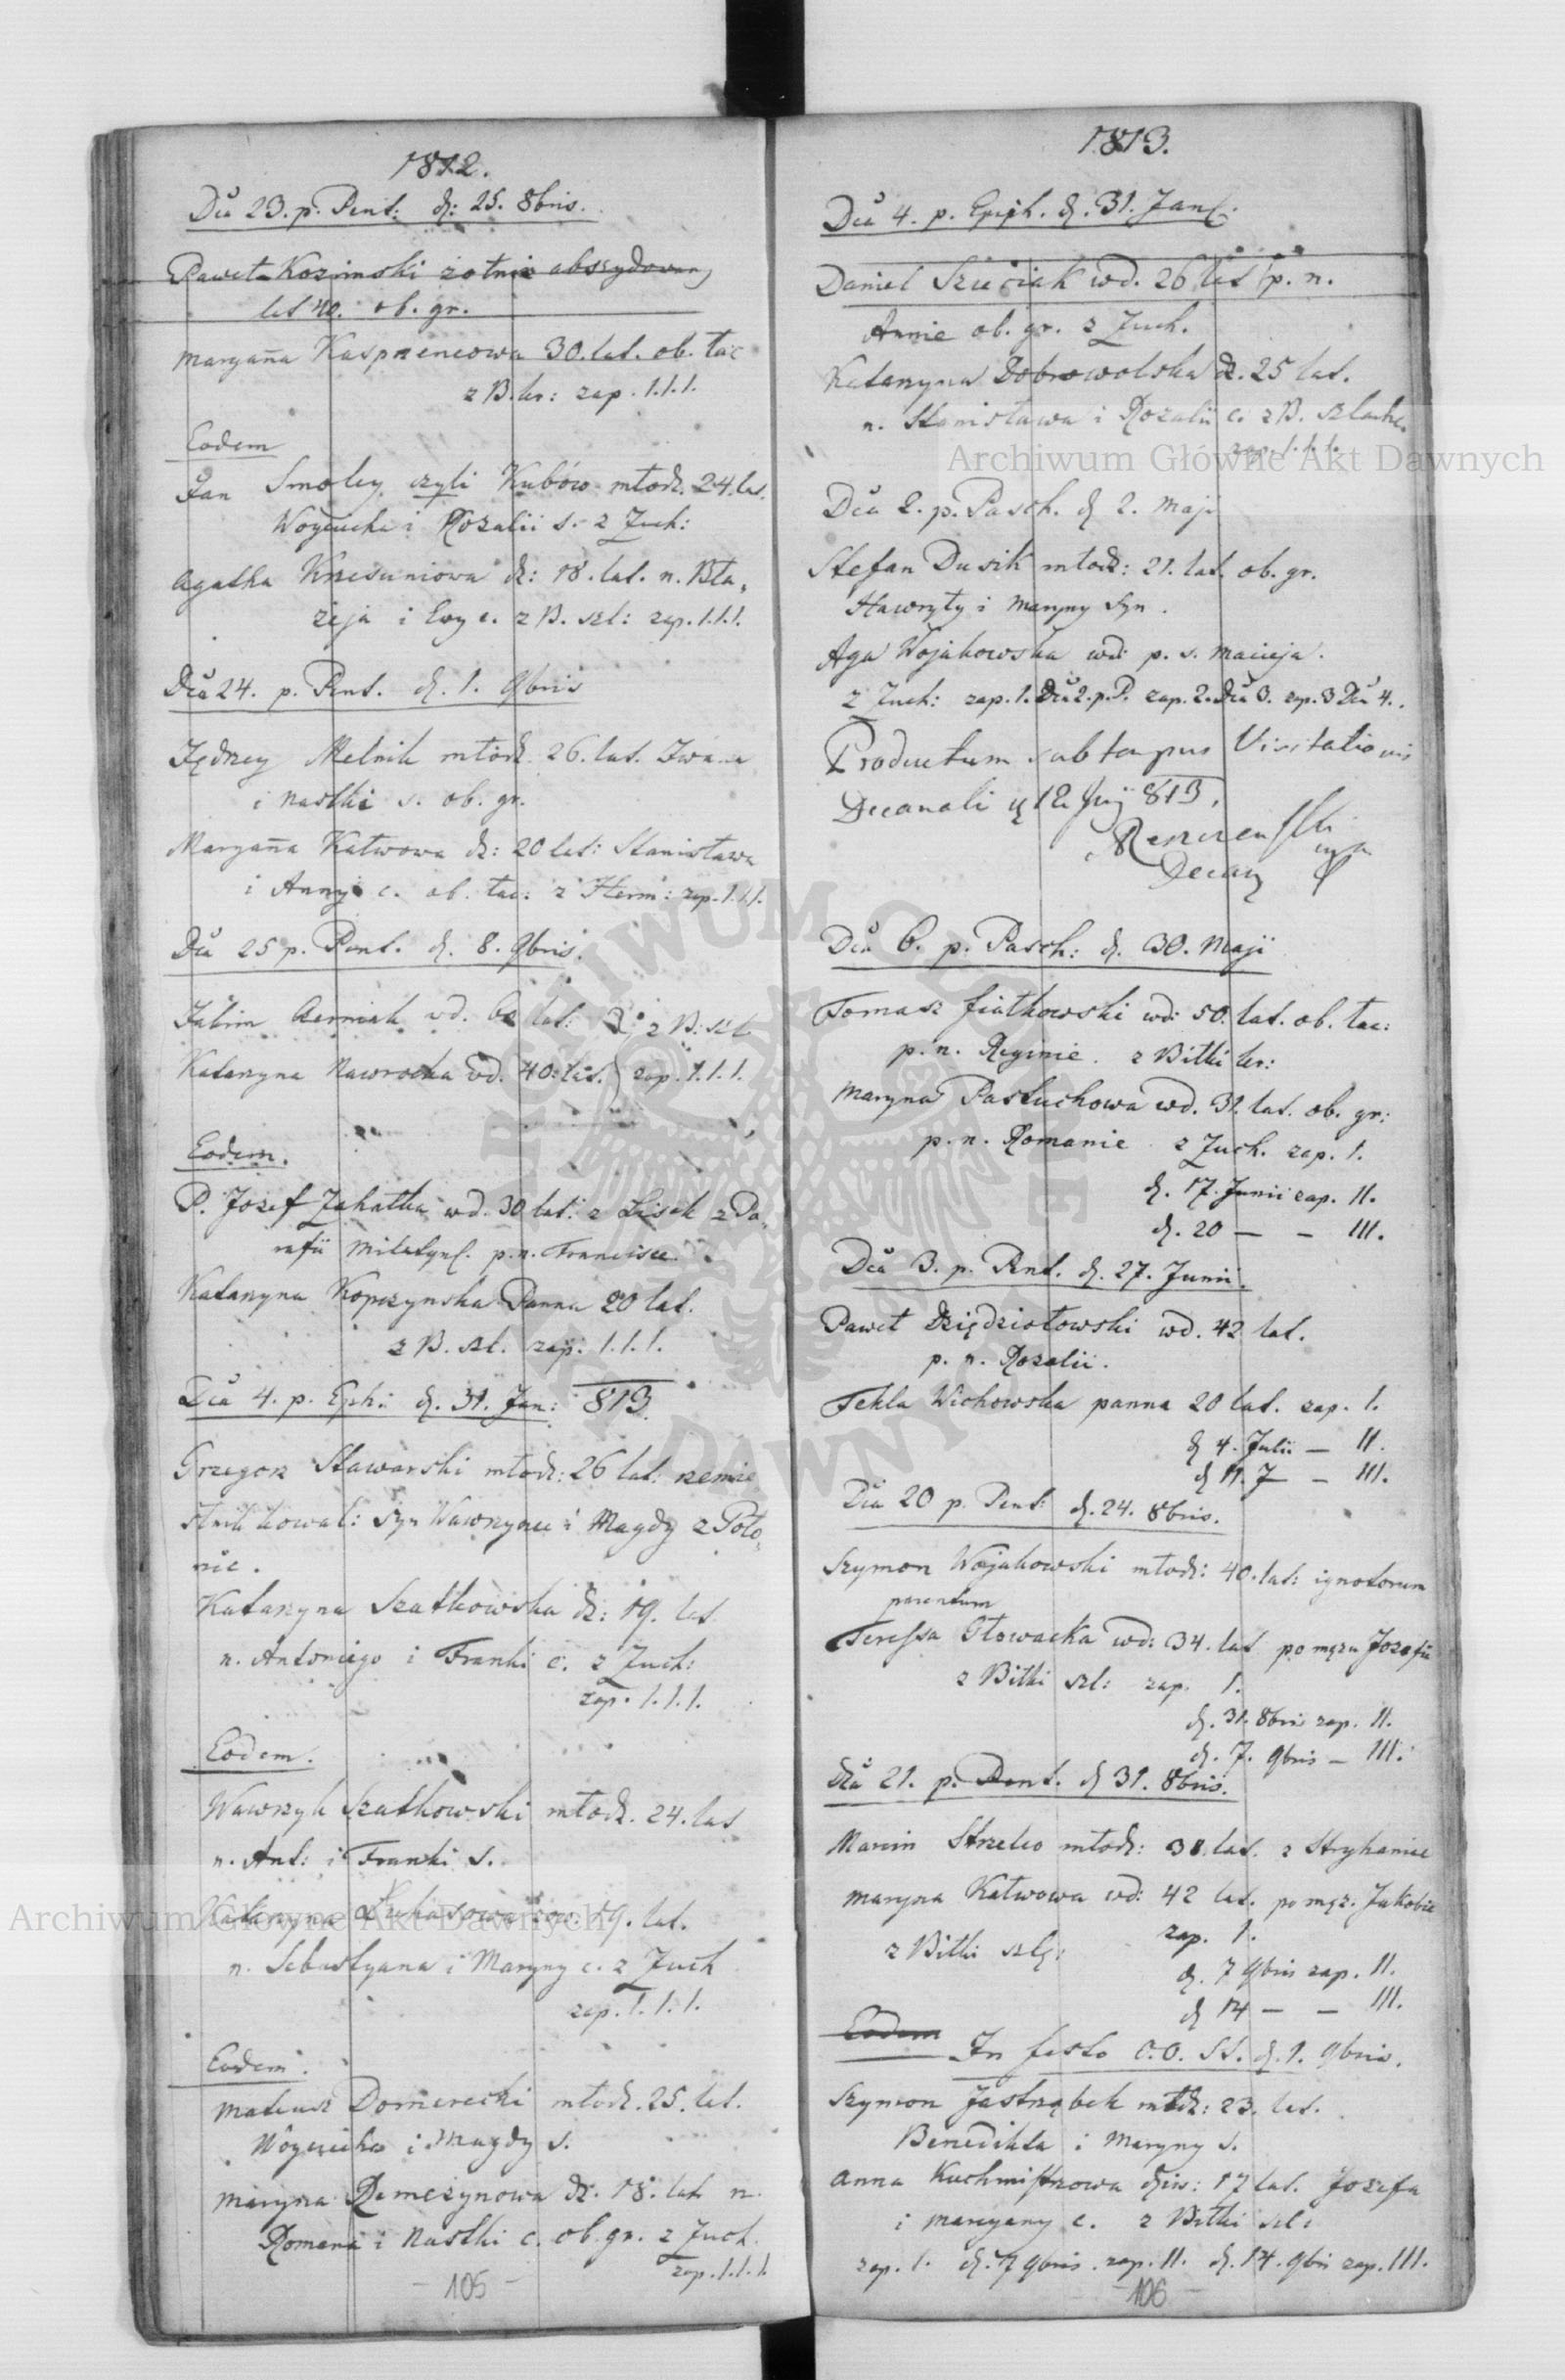 1812.
Dca 23. p. Pent: d: 25. 8bris.
Paweł Kozimski żołnie abszydowany
lat 40. ob. gr.
Maryan̄a Kasprencowa 30. lat. ob. łac
z B. kr: zap. 1.1.1.
Eodem
Jan Smoley czyli Kubów młodz. 24. lat.
Woyciecha i Rozalii s. z Zuch:
Agatha Krzesuniowa dz: 18. lat. n. Bła,
zeja i Ewy c. z B. szl: zap. 1.1.1.
Dca 24. p. Pent. d. 1. 9bris
Jędrzey Melnik młodz. 26. lat. Iwana
i Nastki s. ob. gr.
Maryan̄a Kałwowa dz: 20 lat: Stanisława
i Anny c. ob. łac: z Herm: zap. 1.1.1.
Dca 25 p. Pent. d. 8. 9bris.
Jakim wd. lat: z B: szl
Katarzyna Nawrocka wd. 40: lat. zap. 1.1.1.
Eodem.
P. Jozef Zahatka wd. 30 lat: z Lisek z Pa,
rafii Milatyn. p. n. Francisce
Katarzyna Kopczynska Panna 20 lat.
z B. szl. zap: 1.1.1.
Dca 4. p. Eph: d. 31. Jan: 813.
Grzegorz Sławarski młodz: 26 lat: rzemie
slnik kowal: syn Wawrzynca i Magdy z Poło,
nic.
Katarzyna Szatkowska dz: 19. lat
n. Antoniego i Franki c. z Zuch:
zap. 1.1.1.
Eodem.
Wawrzyk Szatkowski młodz. 24. lat
n. Ant: i Franki s.
Katarzyna Łukasowa 19. lat.
n. Sebastyana i Maryny c. z Zuch
zap. 1.1.1.
Eodem.
Mateusz Domerecki młodz. 25. lat.
Woyciecha i Magdy s.
Maryna Demczynowa dz. 18. lat n.
Romana i Nastki c. ob. gr. z Zuch.
zap. 1.1.1.
- 105 -
1813.
Dca 4. p. Epiph. d. 31. Jan.
Daniel Sziciak wd. 26 lat p. n.
Annie ob. gr. z Zuch.
Katarzyna Dobrowolska dz. 25 lat.
n. Stanisława i Rozalii c. z B. szlach.
zap. 1.1.1.
Dca 2. p. Pasch. d 2. Maji
Stefan Dusik młodz: 21. lat. ob. gr.
Hawryły i Maryny syn.
Aga Wojakowska wd: p. s. Macieja.
z Zuch: zap. 1. Dca 2. p. P. zap. 2. Dca 3. zap. 3 Dca 4.
Productum sub tempus Visitationis
Decanali 12 813.
Decan
Dca 6. p. Pasch: d. 30. Maji
Tomasz Fiałkowski wd: 50. lat. ob. łac:
p. n. Reginie. z Bitki kr:
Maryna Pastuchowa wd. 31. lat. ob. gr:
p. n. Romanie z Zuch. zap. 1.
d. 17. Junii zap. II.
d. 20 — - III.
Dca 3. p. Pent. d. 27. Junii.
Paweł Dziędziołowski wd. 42 lat.
p. n. Rozalii.
Tekla Wichowska panna 20 lat. zap. 1.
d 4. Julii — II.
d 11. J — III.
Dca 20 p. Pent: d. 24. 8bris.
Szymon Wojakowski młodz: 40. lat: ignotorum
parentum
Teressa Głowacka wd: 34. lat po mężu Jozefie
z Bitki szl: zap. 1.
d. 31. 8bris zap. II.
d. 7. 9bris — III.
Dca 21. p. Pent. d 31. 8bris.
Marcin Strzelec młodz: 31. lat. z Stryhaniec
Maryna Kałwowa wd: 42 lat. po męż. Jakobie
zap. 1.
z Bitki szlę:
d. 7 9bris zap. II.
d 14 — — III.
Eodem In festo O.O. SS. d. 1. 9bris.
Szymon Jastrząbek młdz: 23. lat.
Benedikta i Maryny s.
Anna Kuchmistrzowa dziw: 17 lat. Jozefa
i Maryany c. z Bitki szl:
zap. 1. d. 7 9bris. zap. II. d. 14. 9bri zap. III.
- 106 -
Archiwum Główne Akt Dawnych
Archiwum Główne Akt Dawnych
ARCHIWUM GŁÓWNE AKT DAWNYCH